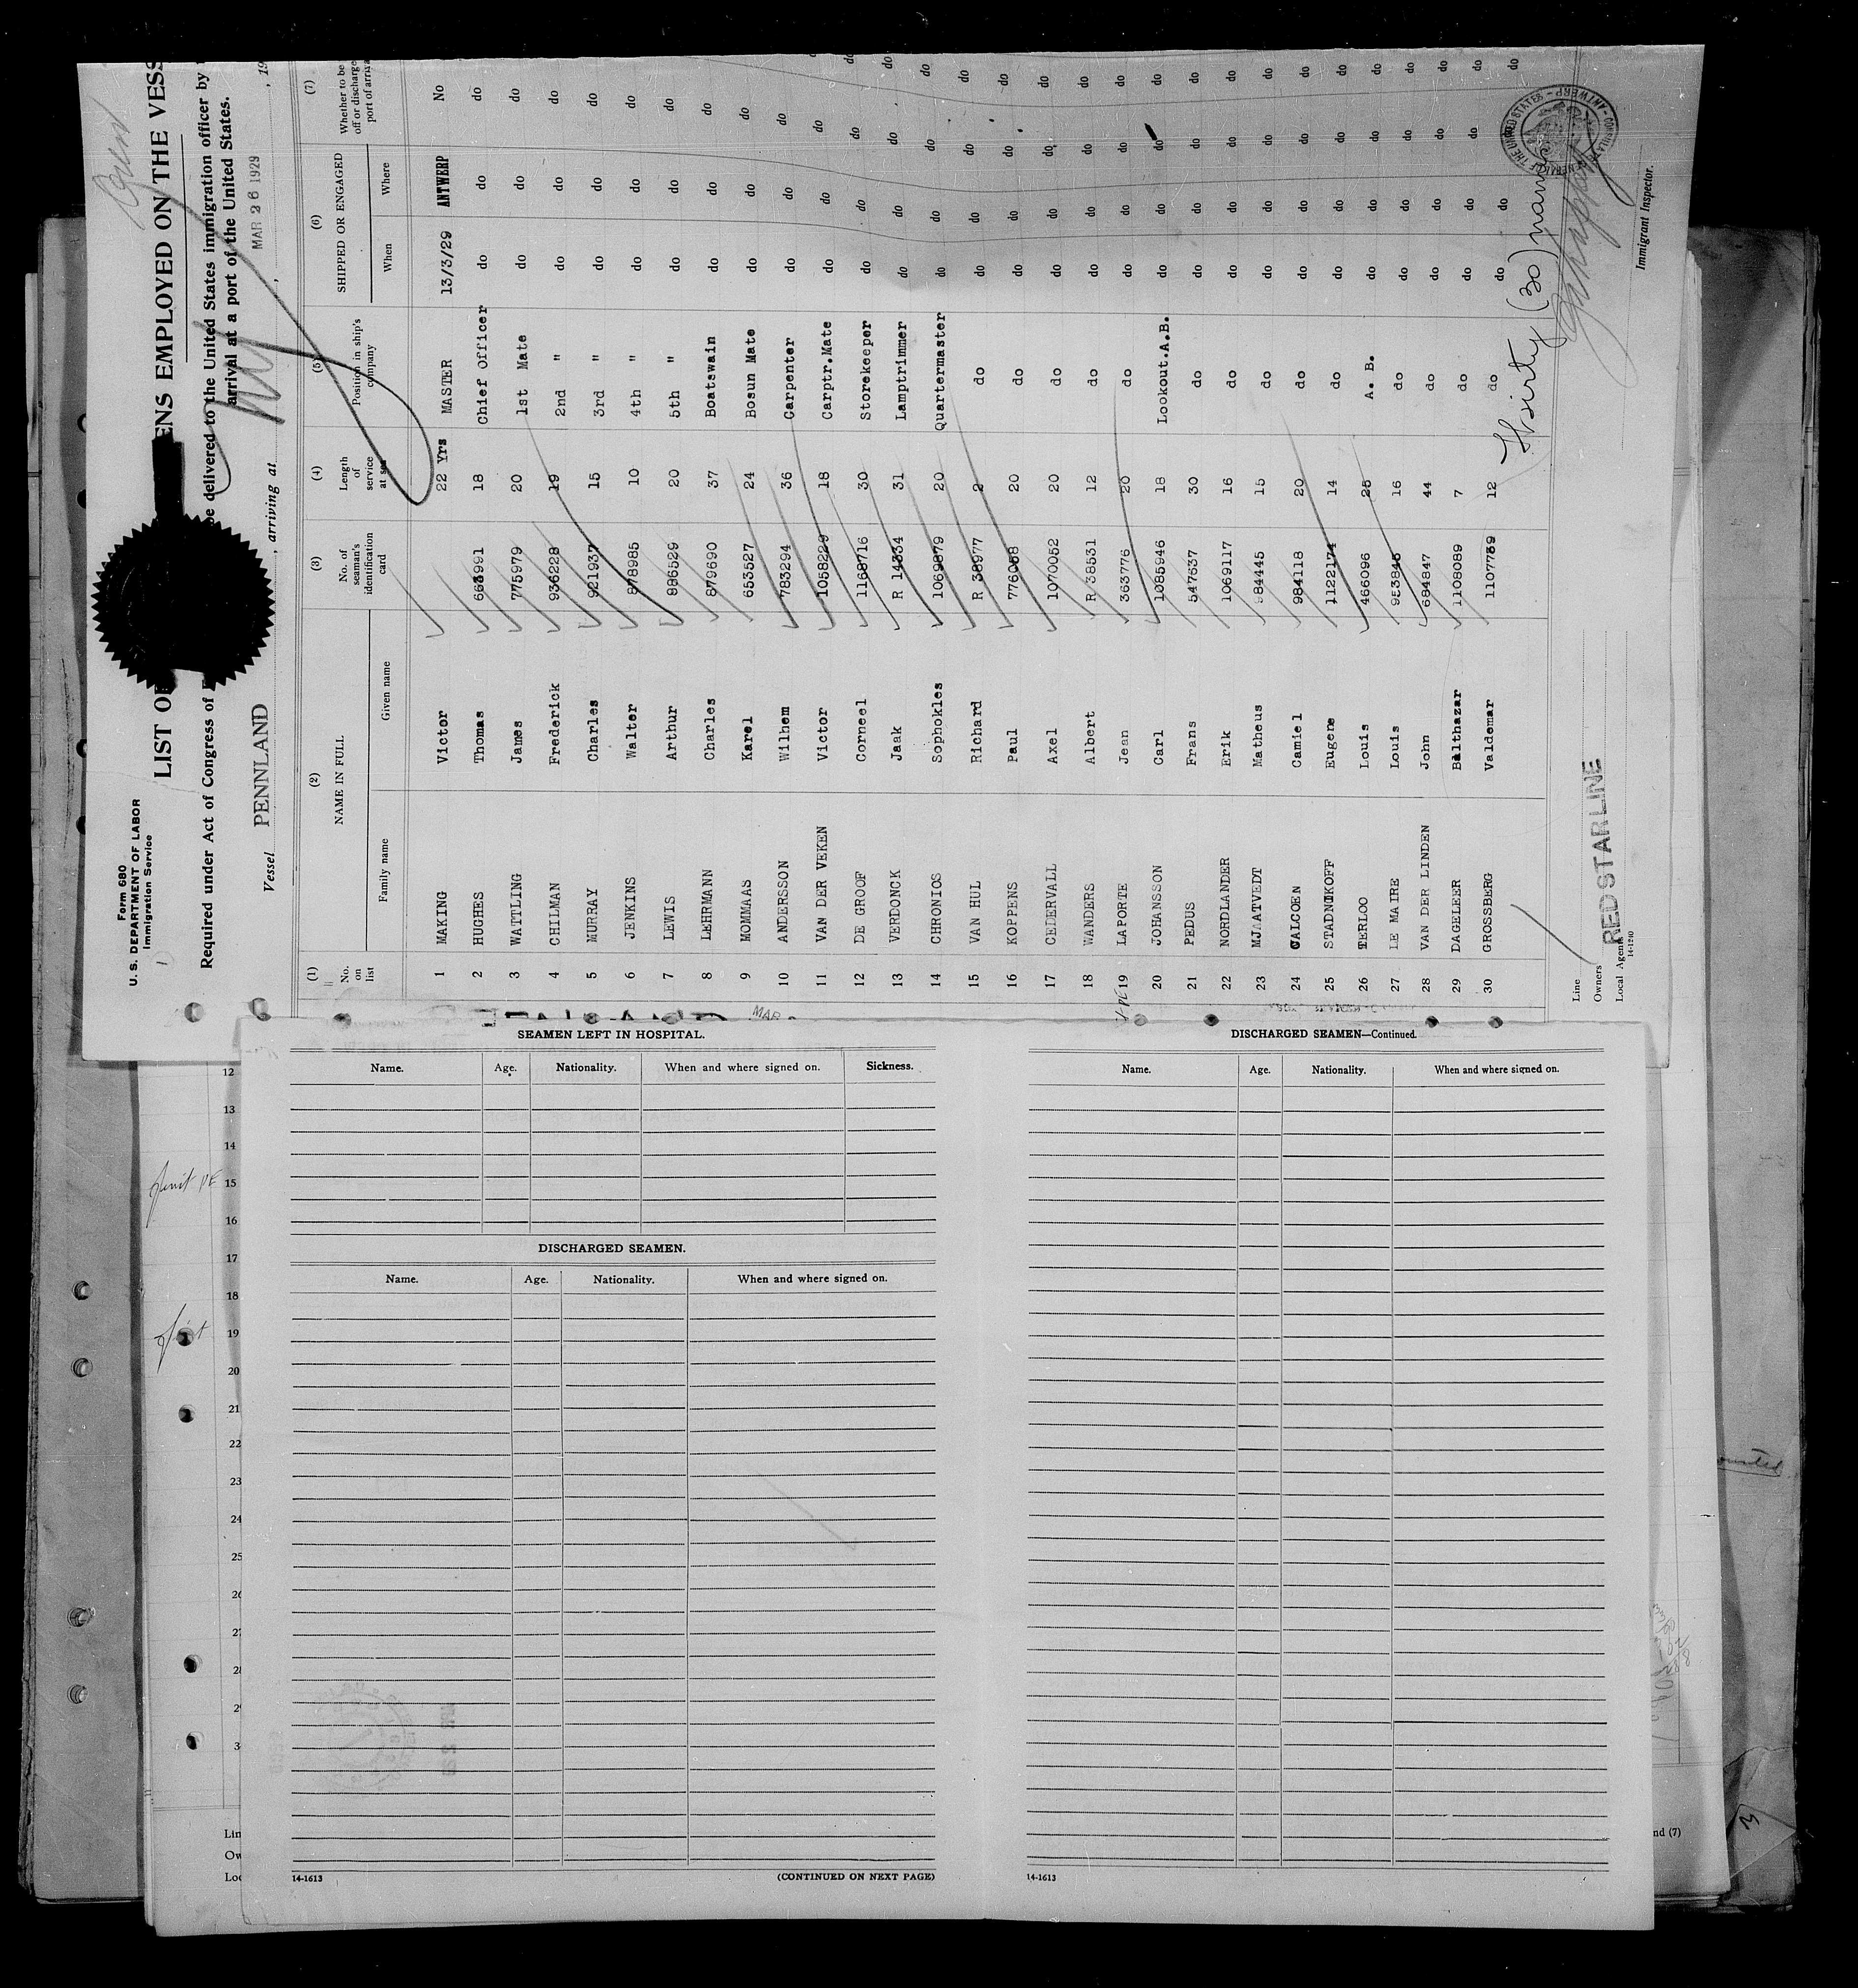 Form 680
U. S. DEPARTMENT OF LABOR
Immigration Service
ENS EMPLOYED ON THE VESS
LIST O
Required under Act of Congress of
be delivered to the United States immigration officer by
arrival at a port of the United States.
Vessel PENNLAND , arriving at , MAR 26 1929 , 19
(1) (2) (3) (4) (5) (6) (7)
No. on list
NAME IN FULL
Family name Given name
No. of seaman's identification card
Length of service at sea
Position in ship's company
SHIPPED OR ENGAGED
When Where
Whether to be
off or discharge
port of arriva
1 MAKING Victor 22 Yrs MASTER 13/3/29 ANTWERP No
2 HUGHES Thomas 663991 18 Chief Officer do do do
3 WATTLING James 775979 20 1st Mate do do do
4 CHILMAN Frederick 936228 19 2nd " do do do
5 MURRAY Charles 921937 15 3rd " do do do
6 JENKINS Walter 878985 10 4th " do do do
7 LEWIS Arthur 886529 20 5th " do do do
8 LEHRMANN Charles 879690 37 Boatswain do do do
9 MOMMAAS Karel 653527 24 Bosun Mate do do do
10 ANDERSSON Wilhem 783294 36 Carpenter do do do
11 VAN DER VEKEN Victor 1058229 18 Carptr.Mate do do do
12 DE GROOF Corneel 1168716 30 Storekeeper do do do
13 VERDONCK Jaak R 14334 31 Lamptrimmer do do do
14 CHRONIOS Sophokles 1069879 20 Quartermaster do do do
15 VAN HUL Richard R 38977 2 do do do do
16 KOPPENS Paul 776088 20 do do do do
17 CEDERVALL Axel 1070052 20 do do do do
18 WANDERS Albert R 38531 12 do do do do
19 LAPORTE Jean 363776 20 do do do do
20 JOHANSSON Carl 1085946 18 Lookout.A.B. do do do
21 PEDUS Frans 547637 30 do do do do
22 NORDLANDER Erik 1069117 16 do do do do
23 MJAATVEDT Matheus 984445 15 do do do do
24 CALCOEN Camiel 984118 20 do do do do
25 STADNIKOFF Eugene 1122174 14 do do do do
26 TERLOO Louis 466096 25 A. B. do do do
27 LE MAIRE Louis 953845 16 do do do do
28 VAN DER LINDEN John 684847 44 do do do do
29 DAGELEER Balthazar 1108089 7 do do do do
30 GROSSBERG Valdemar 1107759 12 do do do do
Thirty (30) names
Line
Owners RED STAR LINE
Local Agents
14-1240
Immigrant Inspector.
SEAMEN LEFT IN HOSPITAL.
Name. Age. Nationality. When and where signed on. Sickness.
DISCHARGED SEAMEN.
Name. Age. Nationality. When and where signed on.
14-1613 (CONTINUED ON NEXT PAGE)
DISCHARGED SEAMEN—Continued.
Name. Age. Nationality. When and where signed on.
14-1613
12
13
14
15
16
17
18
19
20
21
22
23
24
25
26
27
28
29
3
Lin
Ow
Loc
nd (7)